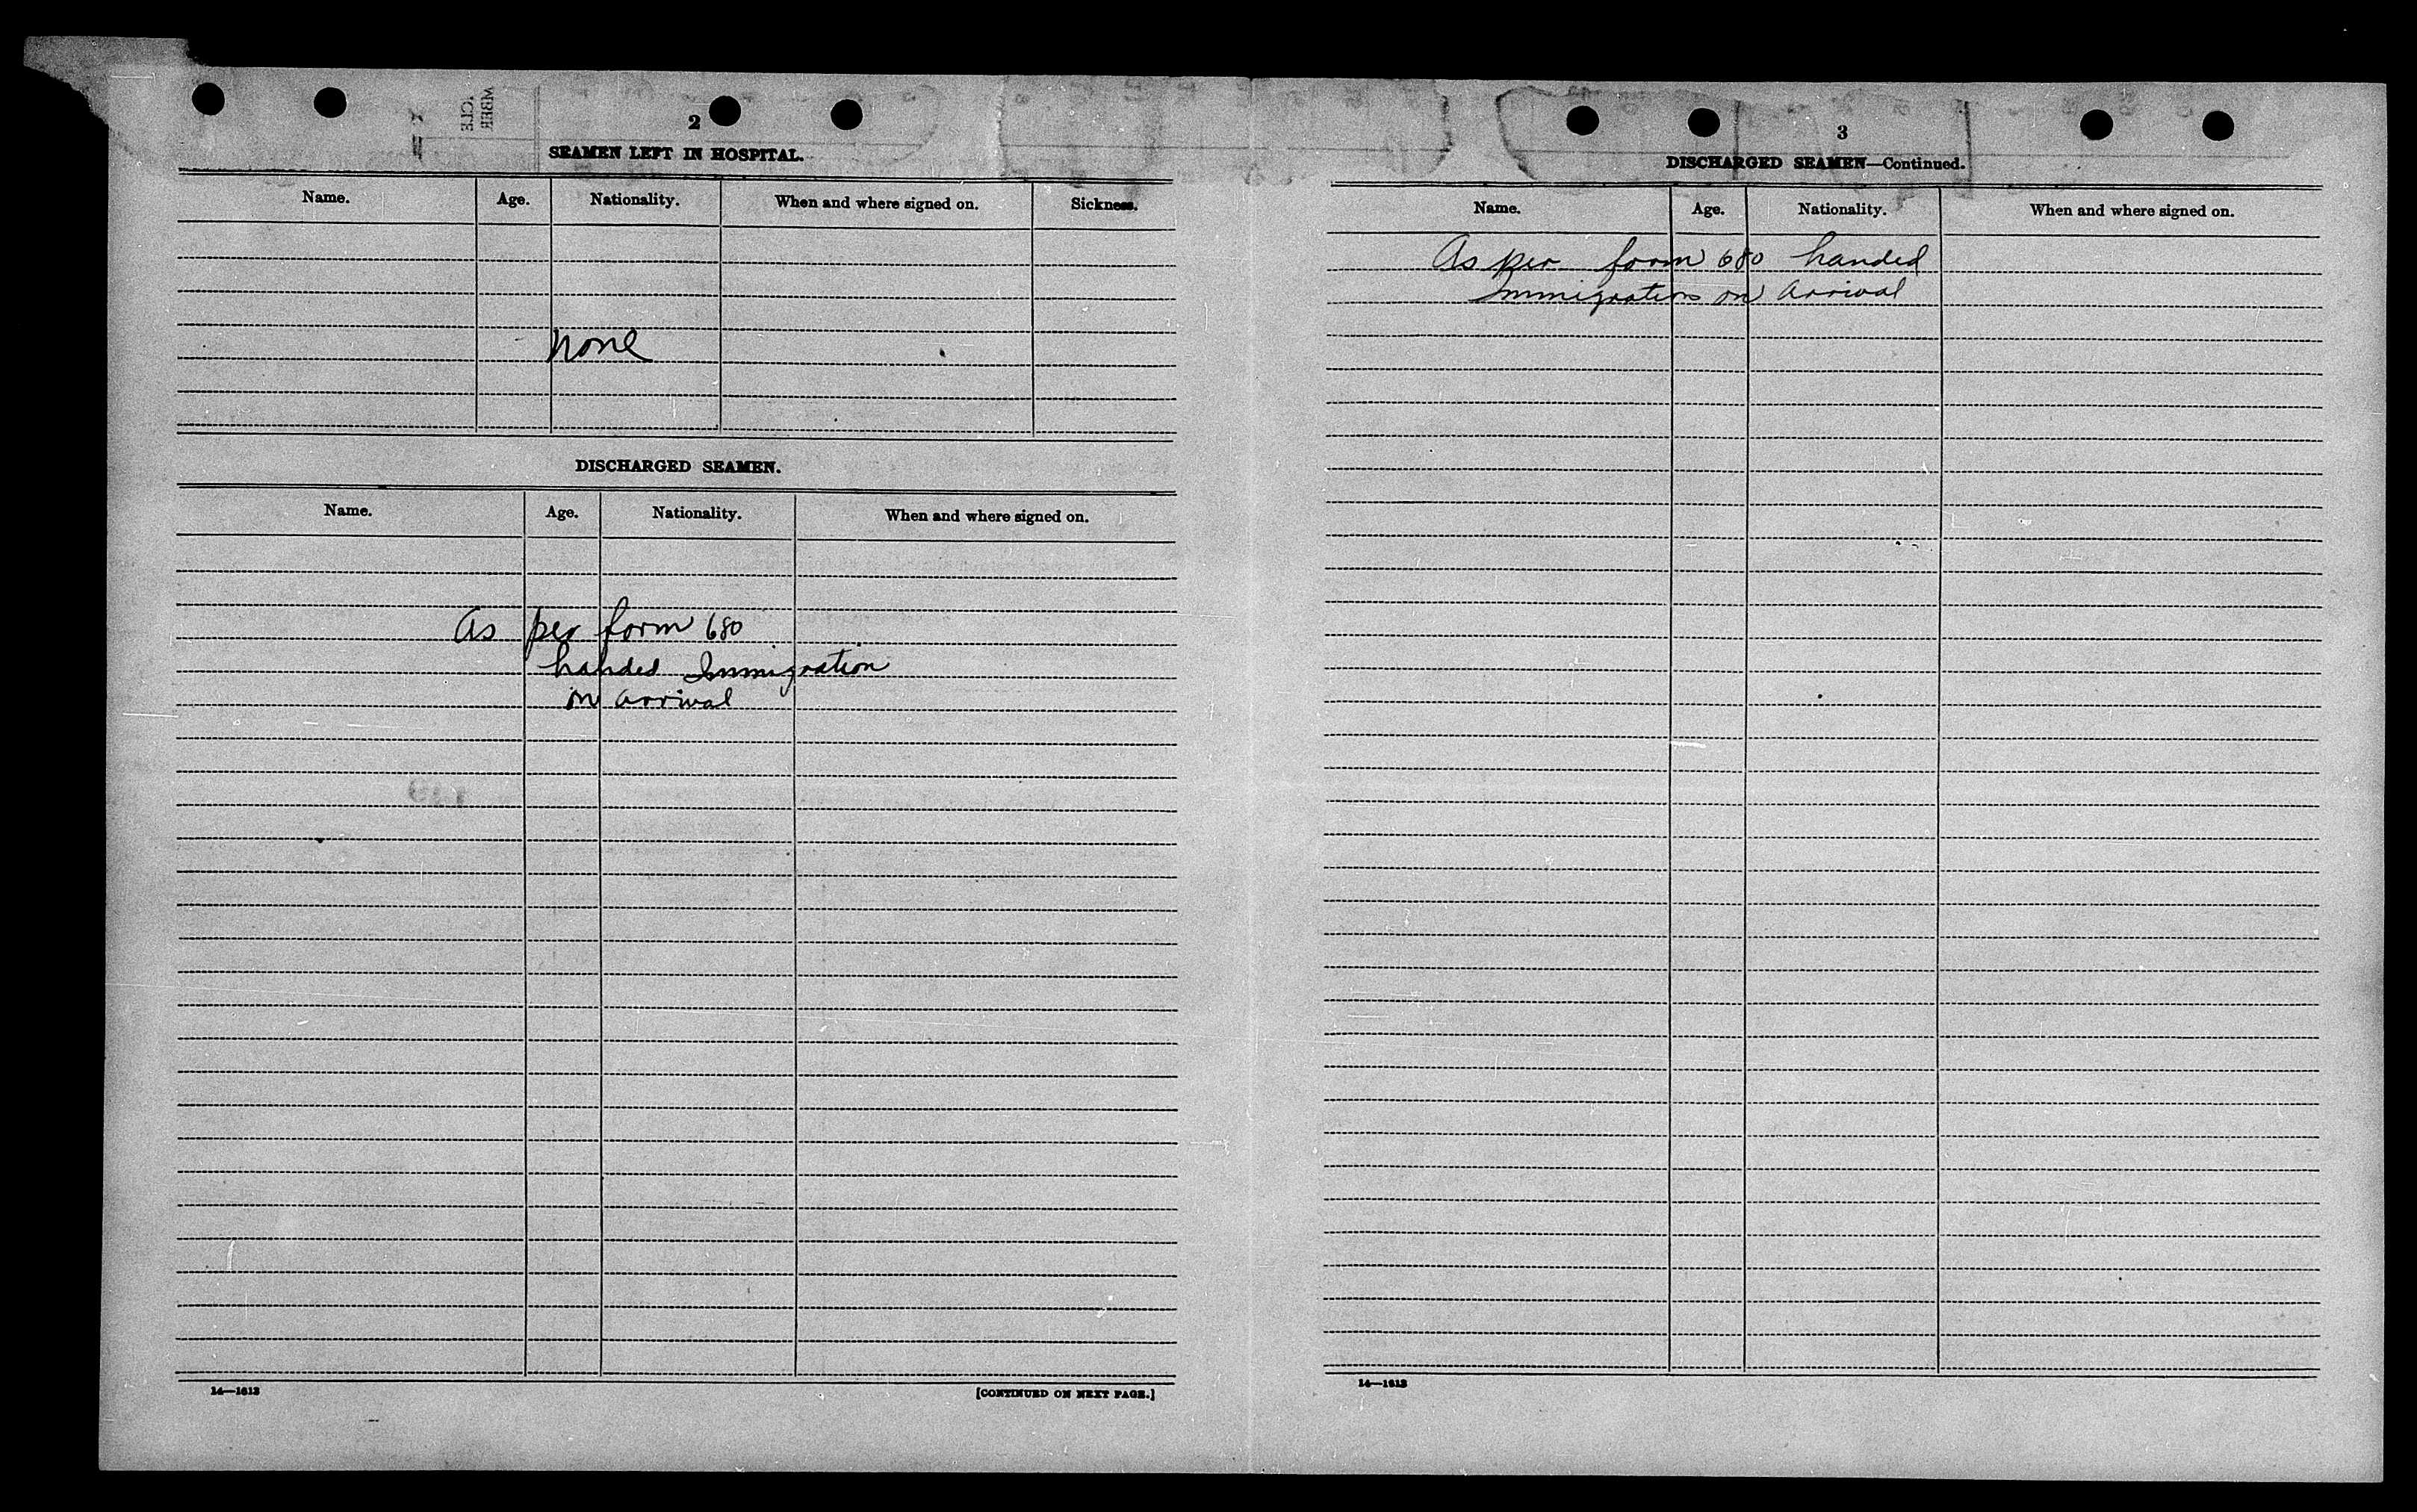 2
SEAMEN LEFT IN HOSPITAL.
Name. Age. Nationality. When and where signed on. Sickness.
None
DISCHARGED SEAMEN.
Name. Age. Nationality. When and where signed on.
As per form 680
handed Immigration
on arrival
14—1613 [CONTINUED ON NEXT PAGE.]
3
DISCHARGED SEAMEN—Continued.
Name. Age. Nationality. When and where signed on.
As per form 680 handed
Immigration on arrival
14—1613